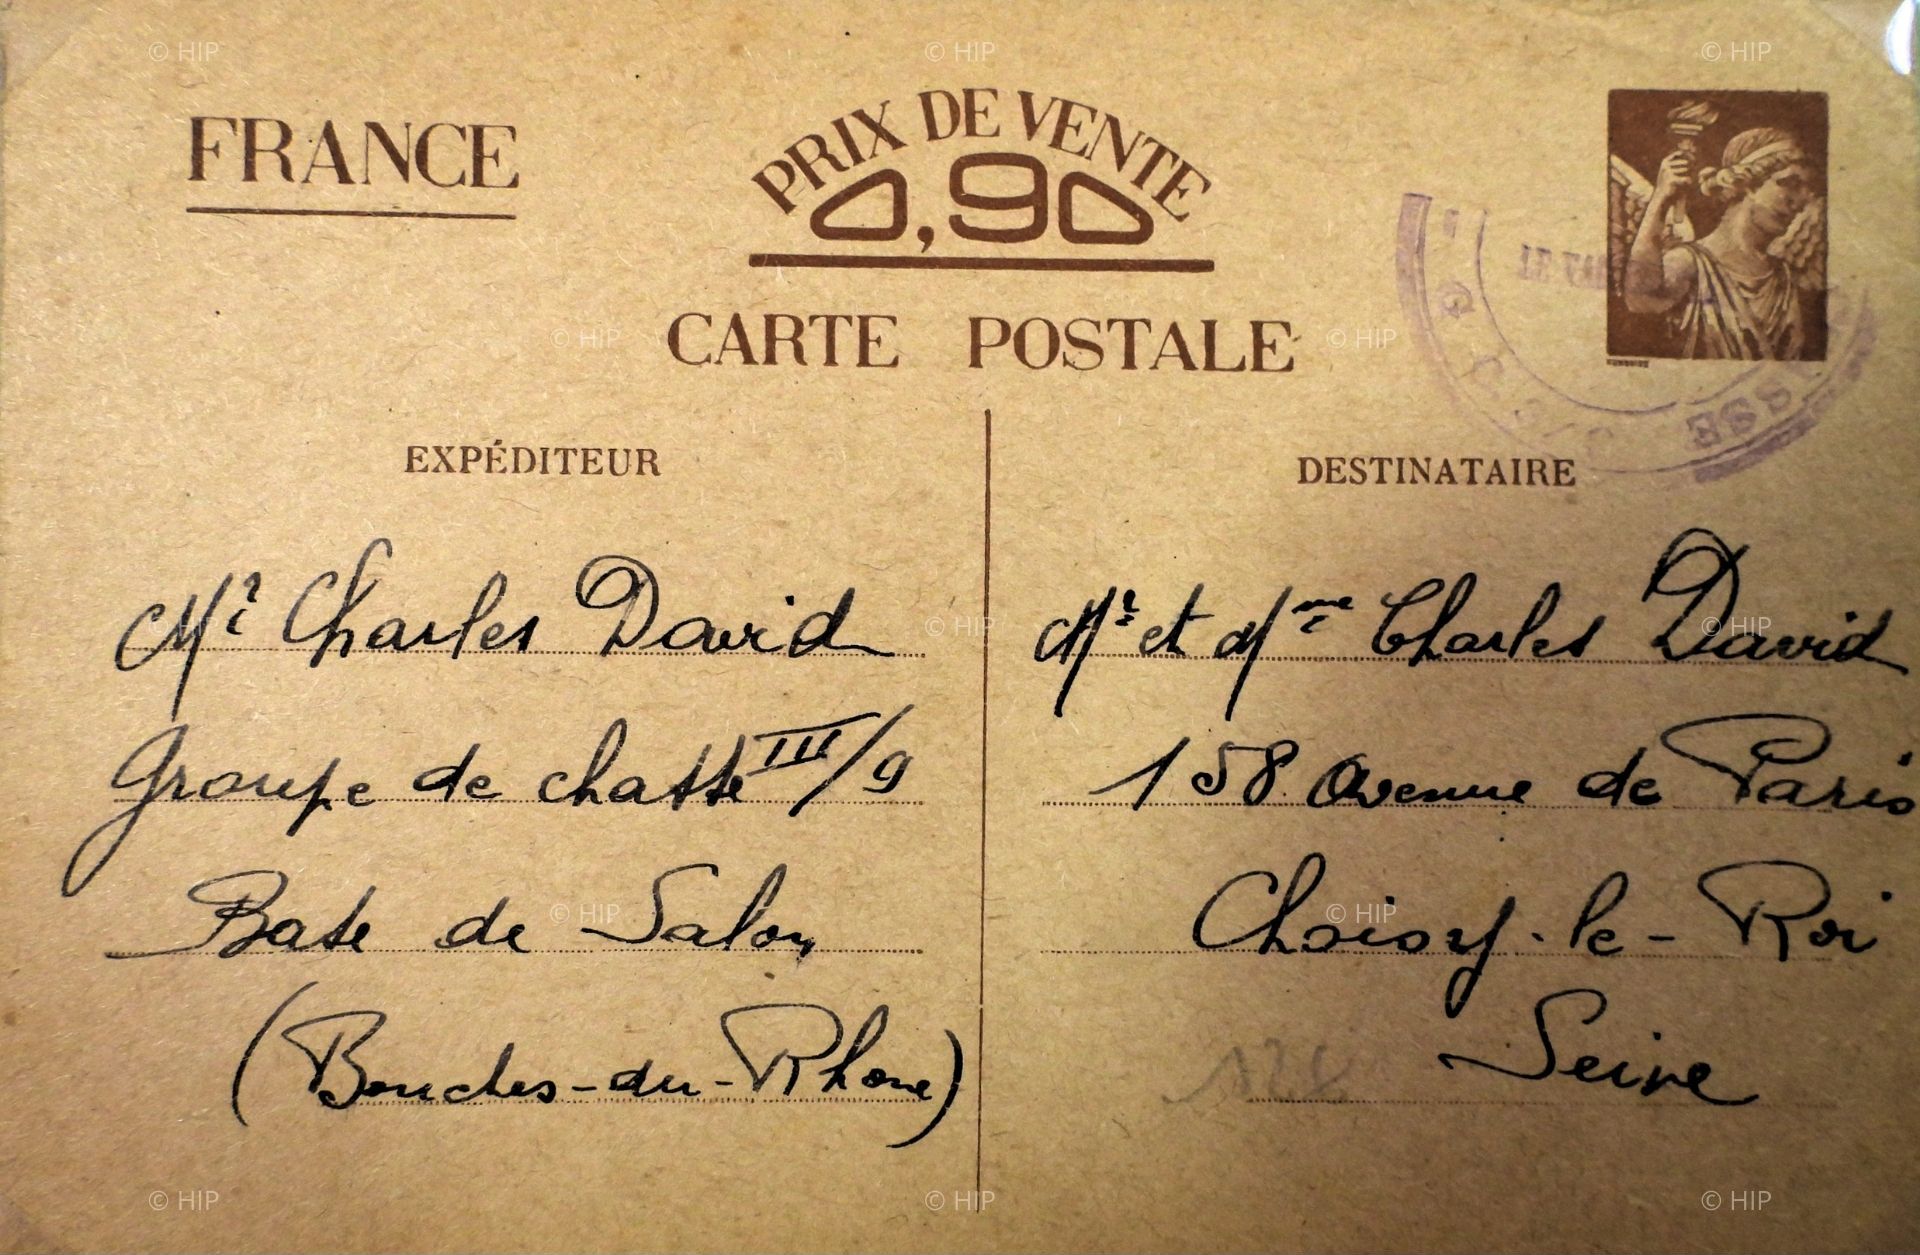 FRANCE
PRIX DE VENTE
0,90
CARTE POSTALE
EXPÉDITEUR
Mr Charles David
Groupe de chasse III/9
Base de Salon
(Bouches-du-Rhone)
DESTINATAIRE
Mr et Mme Charles David
158 Avenue de Paris
Choisy-le-Roi
Seine
© HIP
© HIP
© HIP
© HIP
© HIP
© HIP
© HIP
© HIP
© HIP
© HIP
© HIP
© HIP